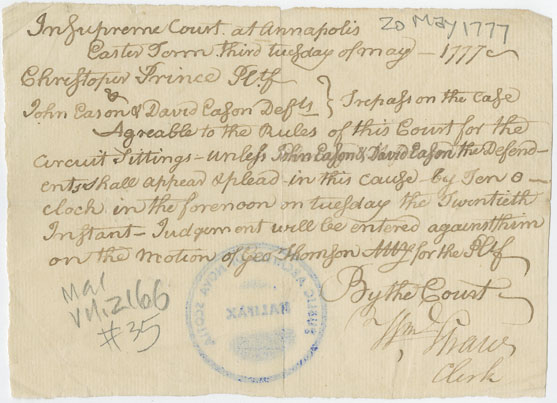 In Supreme Court at Annapolis
20 May 1777
Easter Term third tuesday of may - 1777
Christopur Prince Pltf
&
John Eason & David Eason Defts } Trepass on the Case
Agreable to the Rules of this Court for the
Circuit Sittings - unless John Eason & David Eason the Defend-
ents shall appear & plead in this cause by Ten o-
clock in the forenoon on tuesday the Twentieth
Instant - Judgement will be entered against him
on the Motion of Geo Thomson Atty for the Pltf
By the Court
Wm Shaw
Clerk
Mal
Vol. 2166
#35
PUBLIC ARCHIVES OF NOVA SCOTIA
HALIFAX